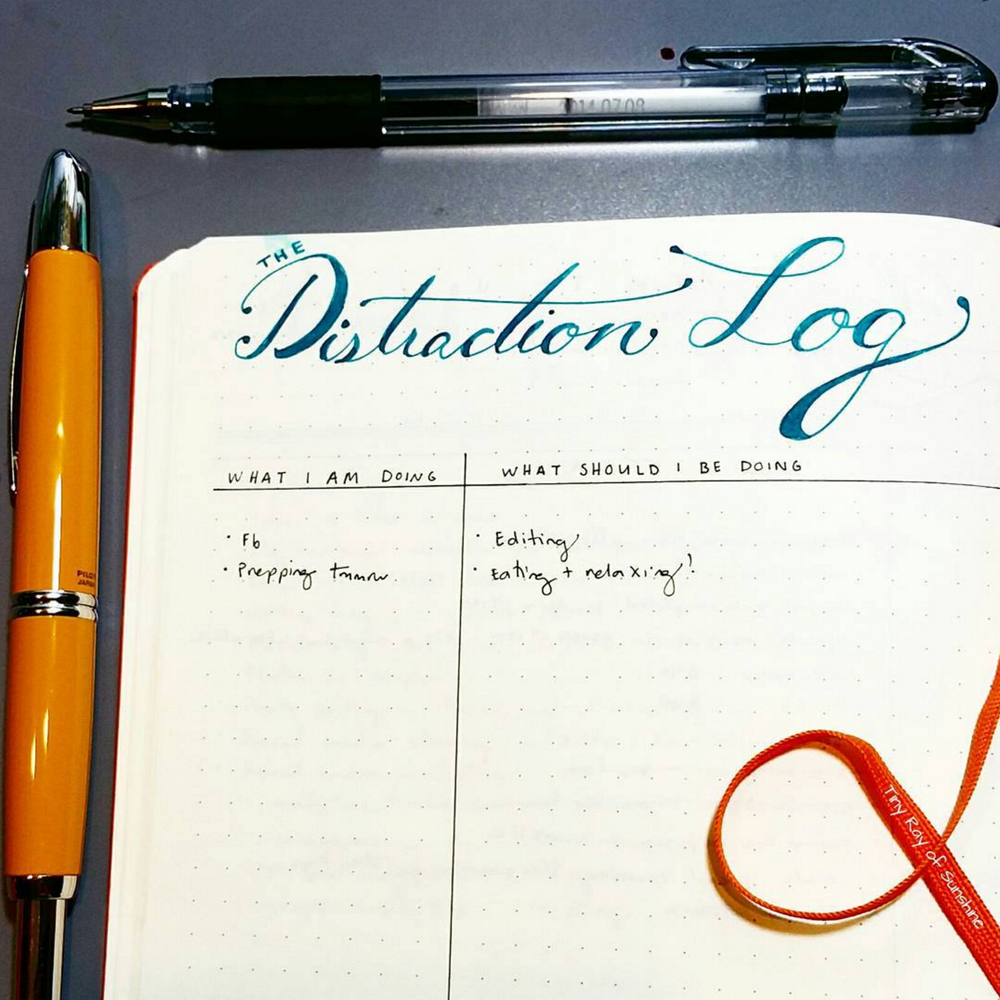 2014.07.08
THE
Distraction Log
WHAT I AM DOING
WHAT SHOULD I BE DOING
· Fb
· Editing
· Prepping tmrrw
· Eating + relaxing!
PILOT
JAPAN
Tiny Ray of Sunshine